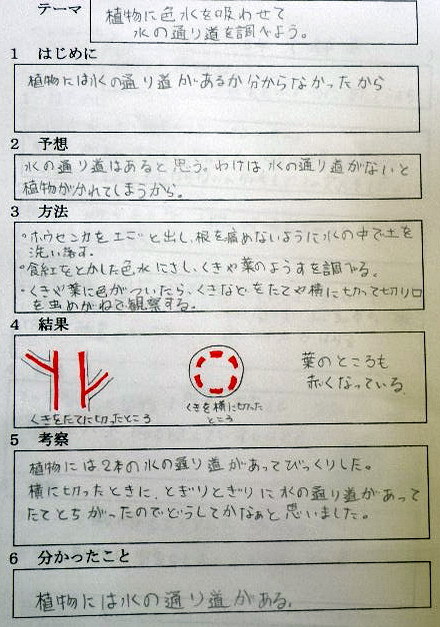 テーマ
植物に色水を吸わせて
水の通り道を調べよう。
1 はじめに
植物には水の通り道があるか分からなかったから
2 予想
水の通り道はあると思う。わけは水の通り道がないと
植物がかれてしまうから。
3 方法
・ホウセンカを土ごと出し、根を痛めないように水の中で土を
洗い落す。
・食紅をとかした色水にさし、くきや葉のようすを調べる。
・くきや葉に色がついたら、くきなどをたてや横に切って切り口
を虫めがねで観察する。
4 結果
葉のところも
赤くなっている。
くきをたてに切ったところ
くきを横に切った
ところ
5 考察
植物には2本の水の通り道があってびっくりした。
横に切ったときに、とぎりとぎりに水の通り道があって
たてとちがったのでどうしてかなぁと思いました。
6 分かったこと
植物には水の通り道がある。